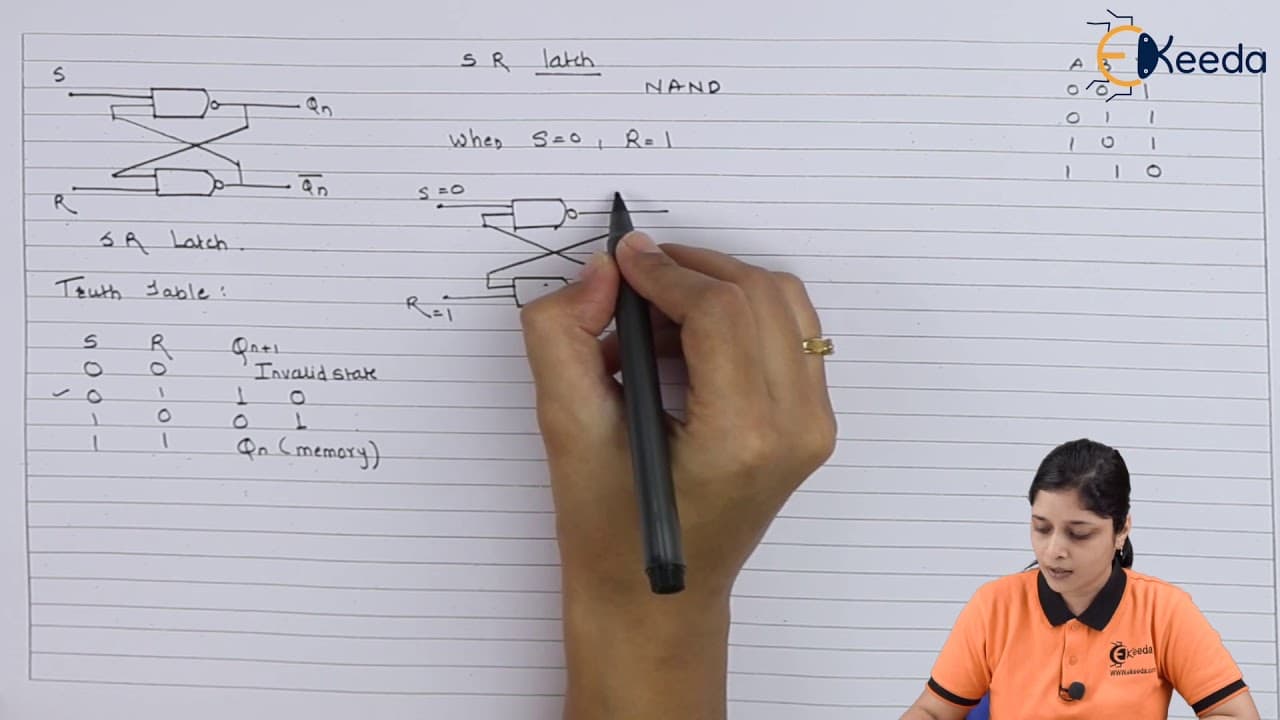 SR latch
NAND
S
Qn
Q̅n
R
SR Latch.
Truth Table:
S R Qn+1
0 0 Invalid state
✓ 0 1 1 0
1 0 0 1
1 1 Qn (memory)
When S=0, R=1
S=0
R=1
A B
0 0 1
0 1 1
1 0 1
1 1 0
EKeeda
EKeeda
www.ekeeda.com